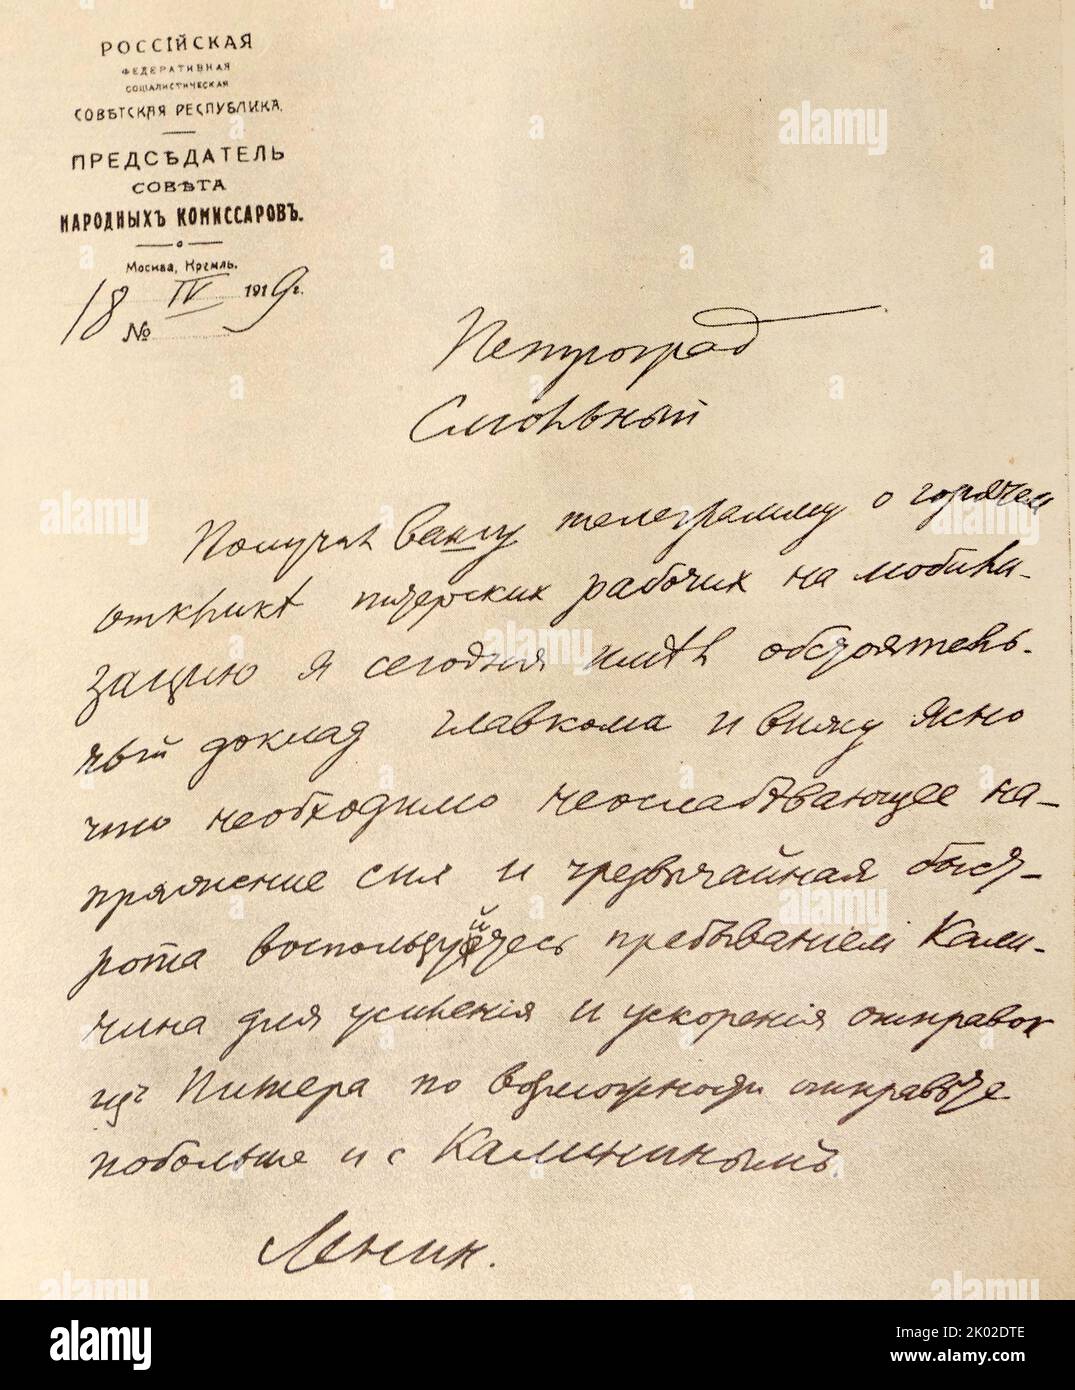 РОССІЙСКАЯ
ФЕДЕРАТИВНАЯ
СОЦІАЛИСТИЧЕСКАЯ
СОВѢТСКАЯ РЕСПУБЛИКА.
ПРЕДСѢДАТЕЛЬ
СОВѢТА
НАРОДНЫХЪ КОМИССАРОВЪ.
Москва, Кремль.
18 IV 1919 г.
№
Петроград
Смольный
Получил вашу телеграмму о горячем
отклике питерских рабочих на мобили-
зацию я сегодня имел обстоятель-
ный доклад главкома и вижу ясно
что необходимо неослабѣвающее на-
пряжение сил и чрезвычайная быст-
рота воспользуйтесь пребыванием Кали-
нина для усиленія и ускоренія отправок
из Питера по возможности отправьте
побольше и с Калининым
Ленин.
alamy
Image ID: 2K02DTE
www.alamy.com